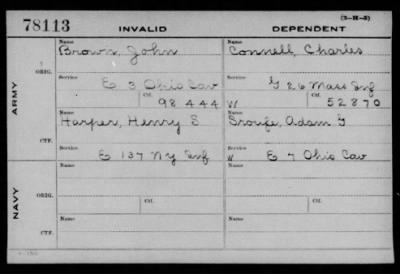 (3-H-3)
78113 INVALID DEPENDENT
Name Name
Brown, John Connell, Charles
ORIG. Service Service
E 3 Ohio Cav G 26 Mass Inf
Ctf. Ctf.
98444 W 52870
ARMY
Name Name
Harper, Henry S Sroufe, Adam G
CTF. Service Service
E 137 NY Inf W E 7 Ohio Cav
Name Name
ORIG. Service Ctf. Service Ctf.
NAVY
Name Name
CTF. Service Service